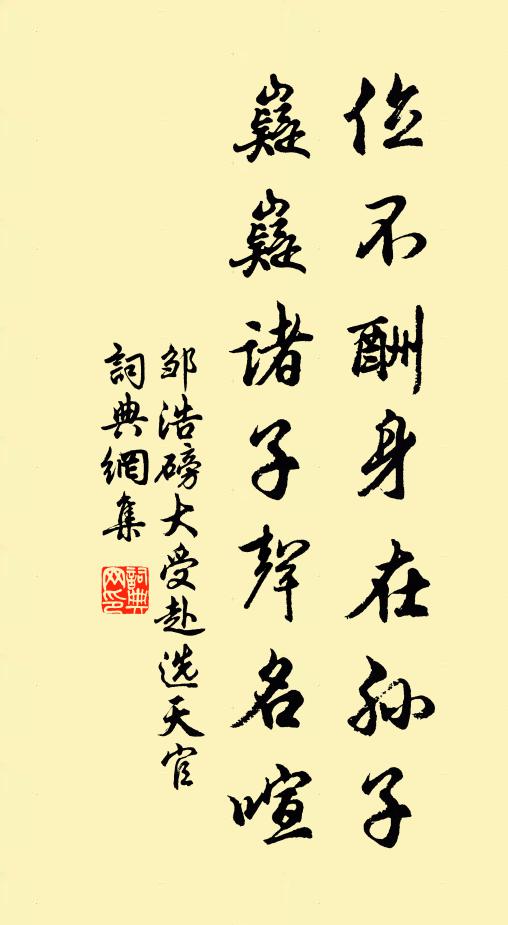 位不酬身在孙子
嶷嶷诸子聲名喧
邹浩磅大受赴选天官
詞典網集
詞典网印